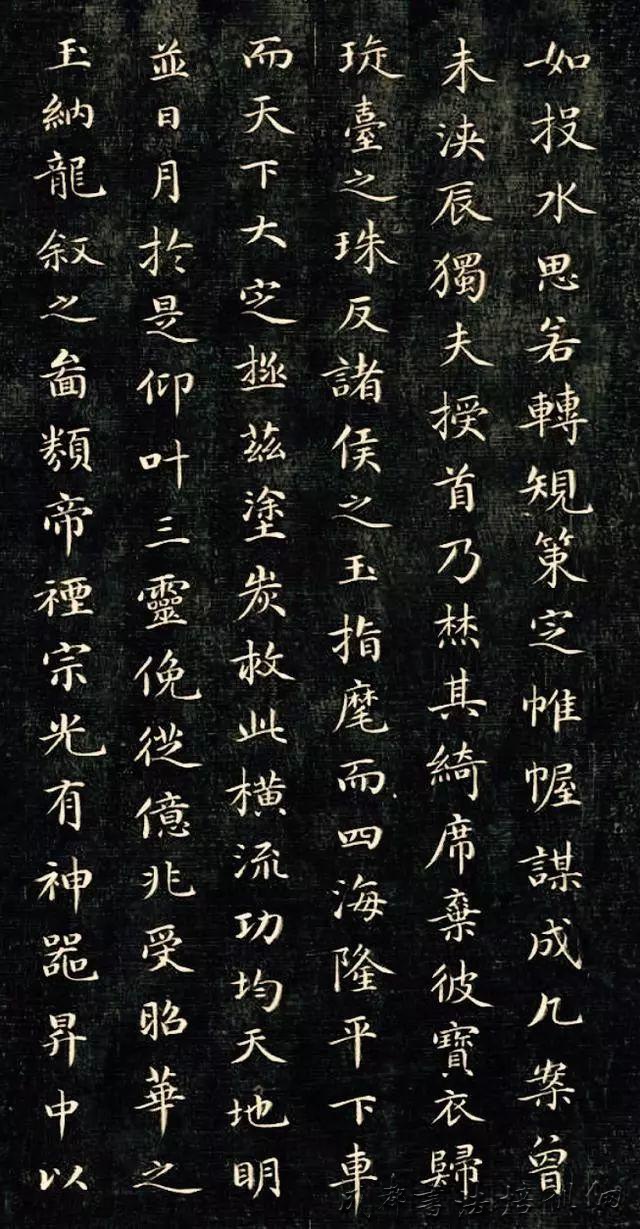 如投水思若轉規策定帷幄謀成几案曾
未浹辰獨夫授首乃焚其綺席棄彼寶衣歸
琁臺之珠反諸侯之玉指麾而四海隆平下車
而天下大定拯茲塗炭救此橫流功均天地明
並日月於是仰叶三靈俛從億兆受昭華之
玉納龍叙之啚類帝禋宗光有神器昇中以
成都書法培訓網